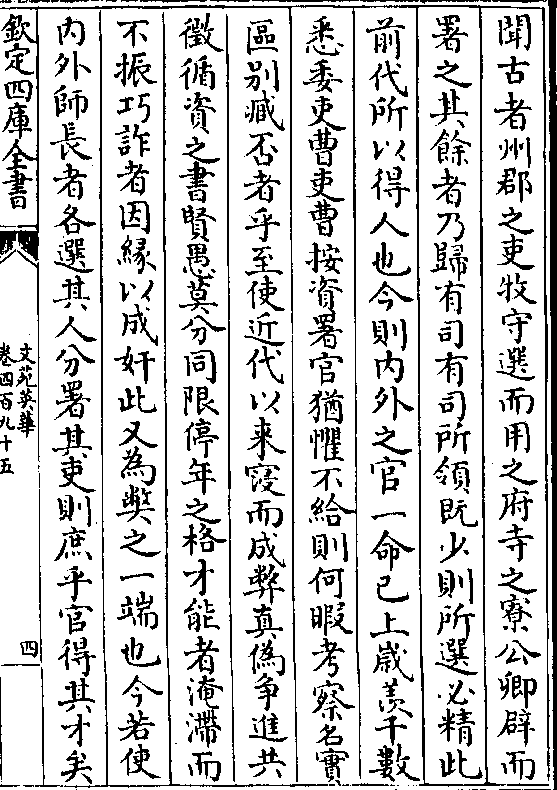 聞古者州郡之吏牧守選而用之府寺之寮公卿辟而
署之其餘者乃歸有司有司所領既少則所選必精此
前代所以得人也今則内外之官一命已上嵗羨千數
悉委吏曹吏曹按資署官猶懼不給則何暇考察名實
區别臧否者乎至使近代以来寖而成弊真偽争進共
徵循資之書賢愚莫分同限停年之格才能者淹滯而
不振巧詐者因緣以成奸此又為弊之一端也今若使
内外師長者各選其人分署其吏則庶乎官得其才矣
欽定四庫全書
文苑英華
卷四百九十五
四